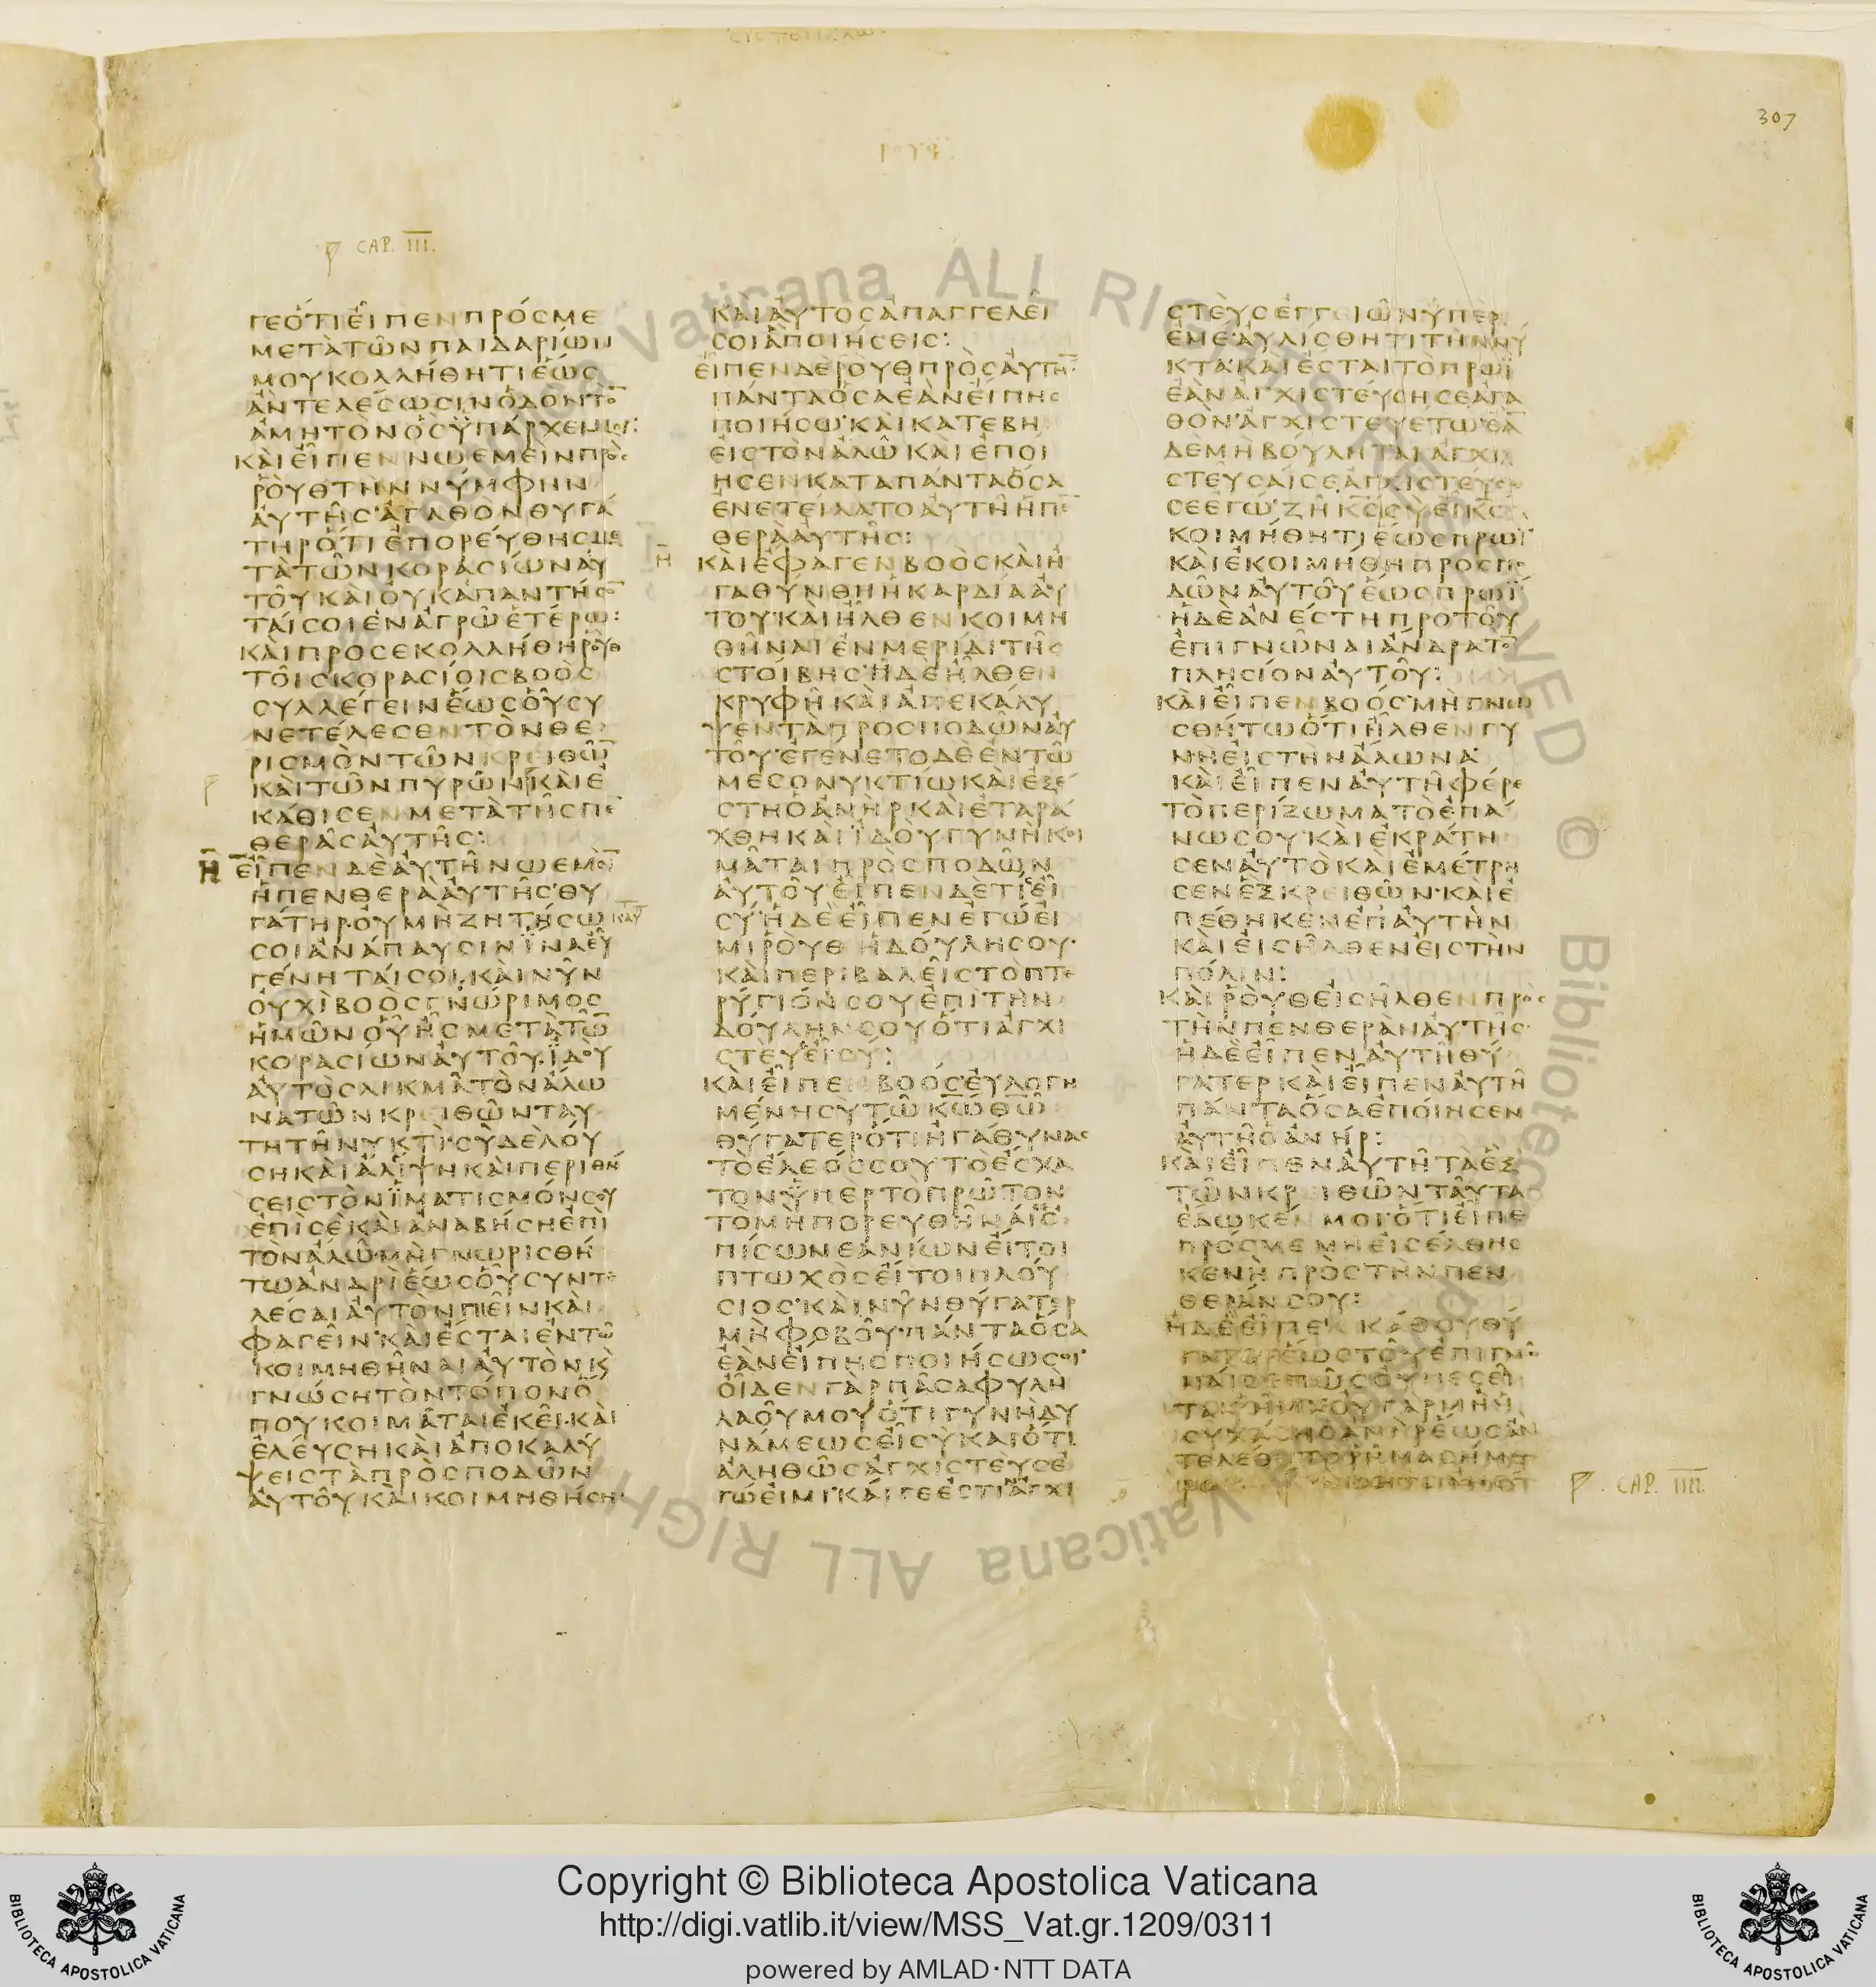 307
ΡΟΥΘ
CAP. III.
ΓΕΟΤΙΕΙΠΕΝΠΡΟΣΜΕ
ΜΕΤΑΤΩΝΠΑΙΔΑΡΙΩΝ
ΜΟΥΚΟΛΛΗΘΗΤΙΕΩΣ
ΑΝΤΕΛΕΣΩΣΙΝΟΛΟΝΤΟ̅
ΑΜΗΤΟΝΟΣΫΠΑΡΧΕΙΜΟΙ:
ΚΑΙΕΙΠΕΝΝΩΕΜΕΙΝΠΡΟΣ
ΡΟΥΘΤΗΝΝΥΜΦΗΝ
ΑΥΤΗΣ·ΑΓΑΘΟΝΘΥΓΑ
ΤΗΡΟΤΙΕΠΟΡΕΥΘΗΣΜΕ
ΤΑΤΩΝΚΟΡΑΣΙΩΝΑΥ
ΤΟΥΚΑΙΟΥΚΑΠΑΝΤΗΣΟ̅
ΤΑΙΣΟΙΕΝΑΓΡΩΕΤΕΡΩ:
ΚΑΙΠΡΟΣΕΚΟΛΛΗΘΗΡΟΥΘ
ΤΟΙΣΚΟΡΑΣΙΟΙΣΒΟΟΣ
ΣΥΛΛΕΓΕΙΝΕΩΣΟΥΣΥ
ΝΕΤΕΛΕΣΕΝΤΟΝΘΕ
ΡΙΣΜΟΝΤΩΝΚΡΕΙΘΩ̅
ΚΑΙΤΩΝΠΥΡΩΝΚΑΙΕ
ΚΑΘΙΣΕΝΜΕΤΑΤΗΣΠΕ̅
ΘΕΡΑΣΑΥΤΗΣ:
Η ΕΙΠΕΝΔΕΑΥΤΗΝΩΕΜΟ̅
ΗΠΕΝΘΕΡΑΑΥΤΗΣ·ΘΥ
ΓΑΤΗΡ·ΟΥΜΗΖΗΤΗΣΩ
ΣΟΙΑΝΑΠΑΥΣΙΝΪΝΑΕΥ
ΓΕΝΗΤΑΙΣΟΙ·ΚΑΙΝΥΝ
ΟΥΧΙΒΟΟΣΓΝΩΡΙΜΟΣ
ΗΜΩΝΟΥΗΣΜΕΤΑΤΩ̅
ΚΟΡΑΣΙΩΝΑΥΤΟΥ·ΪΔΟΥ
ΑΥΤΟΣΛΙΚΜΑΤΟΝΑΛΩ
ΝΑΤΩΝΚΡΕΙΘΩΝΤΑΥ
ΤΗΤΗΝΥΚΤΙ·ΣΥΔΕΛΟΥ
ΣΗΚΑΙΑΛΙΨΗΚΑΙΠΕΡΙΘΗ
ΣΕΙΣΤΟΝΪΜΑΤΙΣΜΟΝΣΟΥ
ΕΠΙΣΕΚΑΙΑΝΑΒΗΣΗΕΠΙ
ΤΟΝΑΛΩ·ΜΗΓΝΩΡΙΣΘΗ
ΤΩΑΝΔΡΙΕΩΣΟΥΣΥΝΤΕ
ΛΕΣΑΙΑΥΤΟΝΠΙΕΙΝΚΑΙ
ΦΑΓΕΙΝ·ΚΑΙΕΣΤΑΙΕΝΤΩ
ΚΟΙΜΗΘΗΝΑΙΑΥΤΟΝΚ̀
ΓΝΩΣΗΤΟΝΤΟΠΟΝΟ
ΠΟΥΚΟΙΜΑΤΑΙΕΚΕΙ·ΚΑΙ
ΕΛΕΥΣΗΚΑΙΑΠΟΚΑΛΥ
ΨΕΙΣΤΑΠΡΟΣΠΟΔΩΝ
ΑΥΤΟΥΚΑΙΚΟΙΜΗΘΗΣΗ·
ΚΑΙΑΥΤΟΣΑΠΑΓΓΕΛΕΙ
ΣΟΙΑΠΟΙΗΣΕΙΣ:
ΕΙΠΕΝΔΕΡΟΥΘΠΡΟΣΑΥΤΗ̅
ΠΑΝΤΑΟΣΑΕΑΝΕΙΠΗΣ
ΠΟΙΗΣΩ·ΚΑΙΚΑΤΕΒΗ
ΕΙΣΤΟΝΑΛΩΚΑΙΕΠΟΙ
ΗΣΕΝΚΑΤΑΠΑΝΤΑΟΣΑ
ΕΝΕΤΕΙΛΑΤΟΑΥΤΗΗΠΕ̅
ΘΕΡΑΑΥΤΗΣ:
Η ΚΑΙΕΦΑΓΕΝΒΟΟΣΚΑΙΗ
ΓΑΘΥΝΘΗΗΚΑΡΔΙΑΑΥ
ΤΟΥ·ΚΑΙΗΛΘΕΝΚΟΙΜΗ
ΘΗΝΑΙΕΝΜΕΡΙΔΙΤΗΣ
ΣΤΟΙΒΗΣ·ΗΔΕΗΛΘΕΝ
ΚΡΥΦΗΚΑΙΑΠΕΚΑΛΥ
ΨΕΝΤΑΠΡΟΣΠΟΔΩΝΑΥ
ΤΟΥ·ΕΓΕΝΕΤΟΔΕΕΝΤΩ
ΜΕΣΟΝΥΚΤΙΩΚΑΙΕΞΕ
ΣΤΗΟΑΝΗΡΚΑΙΕΤΑΡΑ
ΧΘΗΚΑΙΪΔΟΥΓΥΝΗΚΟΙ
ΜΑΤΑΙΠΡΟΣΠΟΔΩΝ
ΑΥΤΟΥ·ΕΙΠΕΝΔΕΤΙΣΕΙ
ΣΥ·ΗΔΕΕΙΠΕΝΕΓΩΕΙ
ΜΙΡΟΥΘΗΔΟΥΛΗΣΟΥ·
ΚΑΙΠΕΡΙΒΑΛΕΙΣΤΟΠΤΕ
ΡΥΓΙΟΝΣΟΥΕΠΙΤΗΝ
ΔΟΥΛΗΝΣΟΥΟΤΙΑΓΧΙ
ΣΤΕΥΣΕΙΣΥ:
ΚΑΙΕΙΠΕΝΒΟΟΣ·ΕΥΛΟΓΗ
ΜΕΝΗΣΥΤΩΚ̅Ω̅Θ̅Ω̅
ΘΥΓΑΤΕΡΟΤΙΗΓΑΘΥΝΑΣ
ΤΟΕΛΕΟΣΣΟΥΤΟΕΣΧΑ
ΤΟΝΫΠΕΡΤΟΠΡΩΤΟΝ
ΤΟΜΗΠΟΡΕΥΘΗΝΑΙΣΕ
ΠΙΣΩΝΕΑΝΙΩΝΕΙΤΟΙ
ΠΤΩΧΟΣΕΙΤΟΙΠΛΟΥ
ΣΙΟΣ·ΚΑΙΝΥΝΘΥΓΑΤΕΡ
ΜΗΦΟΒΟΥ·ΠΑΝΤΑΟΣΑ
ΕΑΝΕΙΠΗΣΠΟΙΗΣΩΣΟΙ·
ΟΙΔΕΝΓΑΡΠΑΣΑΦΥΛΗ
ΛΑΟΥΜΟΥΟΤΙΓΥΝΗΔΥ
ΝΑΜΕΩΣΕΙΣΥΚΑΙΟΤΙ
ΑΛΗΘΩΣΑΓΧΙΣΤΕΥΣΕ
ΓΩΕΙΜΙ·ΚΑΙΓΕΕΣΤΙΝΑΓΧΙ
ΣΤΕΥΣΕΓΓΕΙΩΝΫΠΕΡ
ΕΜΕ·ΑΥΛΙΣΘΗΤΙΤΗΝΝΥ
ΚΤΑ·ΚΑΙΕΣΤΑΙΤΟΠΡΩΪ
ΕΑΝΑΓΧΙΣΤΕΥΣΗΣΕΑΓΑ
ΘΟΝ·ΑΓΧΙΣΤΕΥΕΤΩ·ΕΑ̅
ΔΕΜΗΒΟΥΛΗΤΑΙΑΓΧΙ
ΣΤΕΥΣΑΙΣΕΑΓΧΙΣΤΕΥΣΩ
ΣΕΕΓΩ·ΖΗΚ̅Σ̅ΣΥΕΙΚ̅Σ̅
ΚΟΙΜΗΘΗΤΙΕΩΣΠΡΩΪ
ΚΑΙΕΚΟΙΜΗΘΗΠΡΟΣΠΟ
ΔΩΝΑΥΤΟΥΕΩΣΠΡΩΪ
ΗΔΕΑΝΕΣΤΗΠΡΟΤΟΥ
ΕΠΙΓΝΩΝΑΙΑΝΔΡΑΤΟ̅
ΠΛΗΣΙΟΝΑΥΤΟΥ:
ΚΑΙΕΙΠΕΝΒΟΟΣ·ΜΗΓΝΩ
ΣΘΗΤΩΟΤΙΗΛΘΕΝΓΥ
ΝΗΕΙΣΤΗΝΑΛΩΝΑ·
ΚΑΙΕΙΠΕΝΑΥΤΗΦΕΡΕ
ΤΟΠΕΡΙΖΩΜΑΤΟΕΠΑ
ΝΩΣΟΥ·ΚΑΙΕΚΡΑΤΗ
ΣΕΝΑΥΤΟΚΑΙΕΜΕΤΡΗ
ΣΕΝΕΞΚΡΕΙΘΩΝ·ΚΑΙΕ
ΠΕΘΗΚΕΝΕΠΑΥΤΗΝ
ΚΑΙΕΙΣΗΛΘΕΝΕΙΣΤΗΝ
ΠΟΛΙΝ:
ΚΑΙΡΟΥΘΕΙΣΗΛΘΕΝΠΡΟΣ
ΤΗΝΠΕΝΘΕΡΑΝΑΥΤΗΣ·
ΗΔΕΕΙΠΕΝΑΥΤΗΘΥ
ΓΑΤΕΡΚΑΙΕΙΠΕΝΑΥΤΗ
ΠΑΝΤΑΟΣΑΕΠΟΙΗΣΕΝ
ΑΥΤΗΟΑΝΗΡ:
ΚΑΙΕΙΠΕΝΑΥΤΗΤΑΕΞ
ΤΩΝΚΡΕΙΘΩΝΤΑΥΤΑ
ΕΔΩΚΕΝΜΟΙ·ΟΤΙΕΙΠΕ
ΠΡΟΣΜΕΜΗΕΙΣΕΛΘΗΣ
ΚΕΝΗΠΡΟΣΤΗΝΠΕΝ
ΘΕΡΑΝΣΟΥ:
ΗΔΕΕΙΠΕΝΚΑΘΟΥΘΥ
CAP. IIII.
Copyright © Biblioteca Apostolica Vaticana
http://digi.vatlib.it/view/MSS_Vat.gr.1209/0311
powered by AMLAD·NTT DATA
BIBLIOTECA APOSTOLICA VATICANA
BIBLIOTECA APOSTOLICA VATICANA